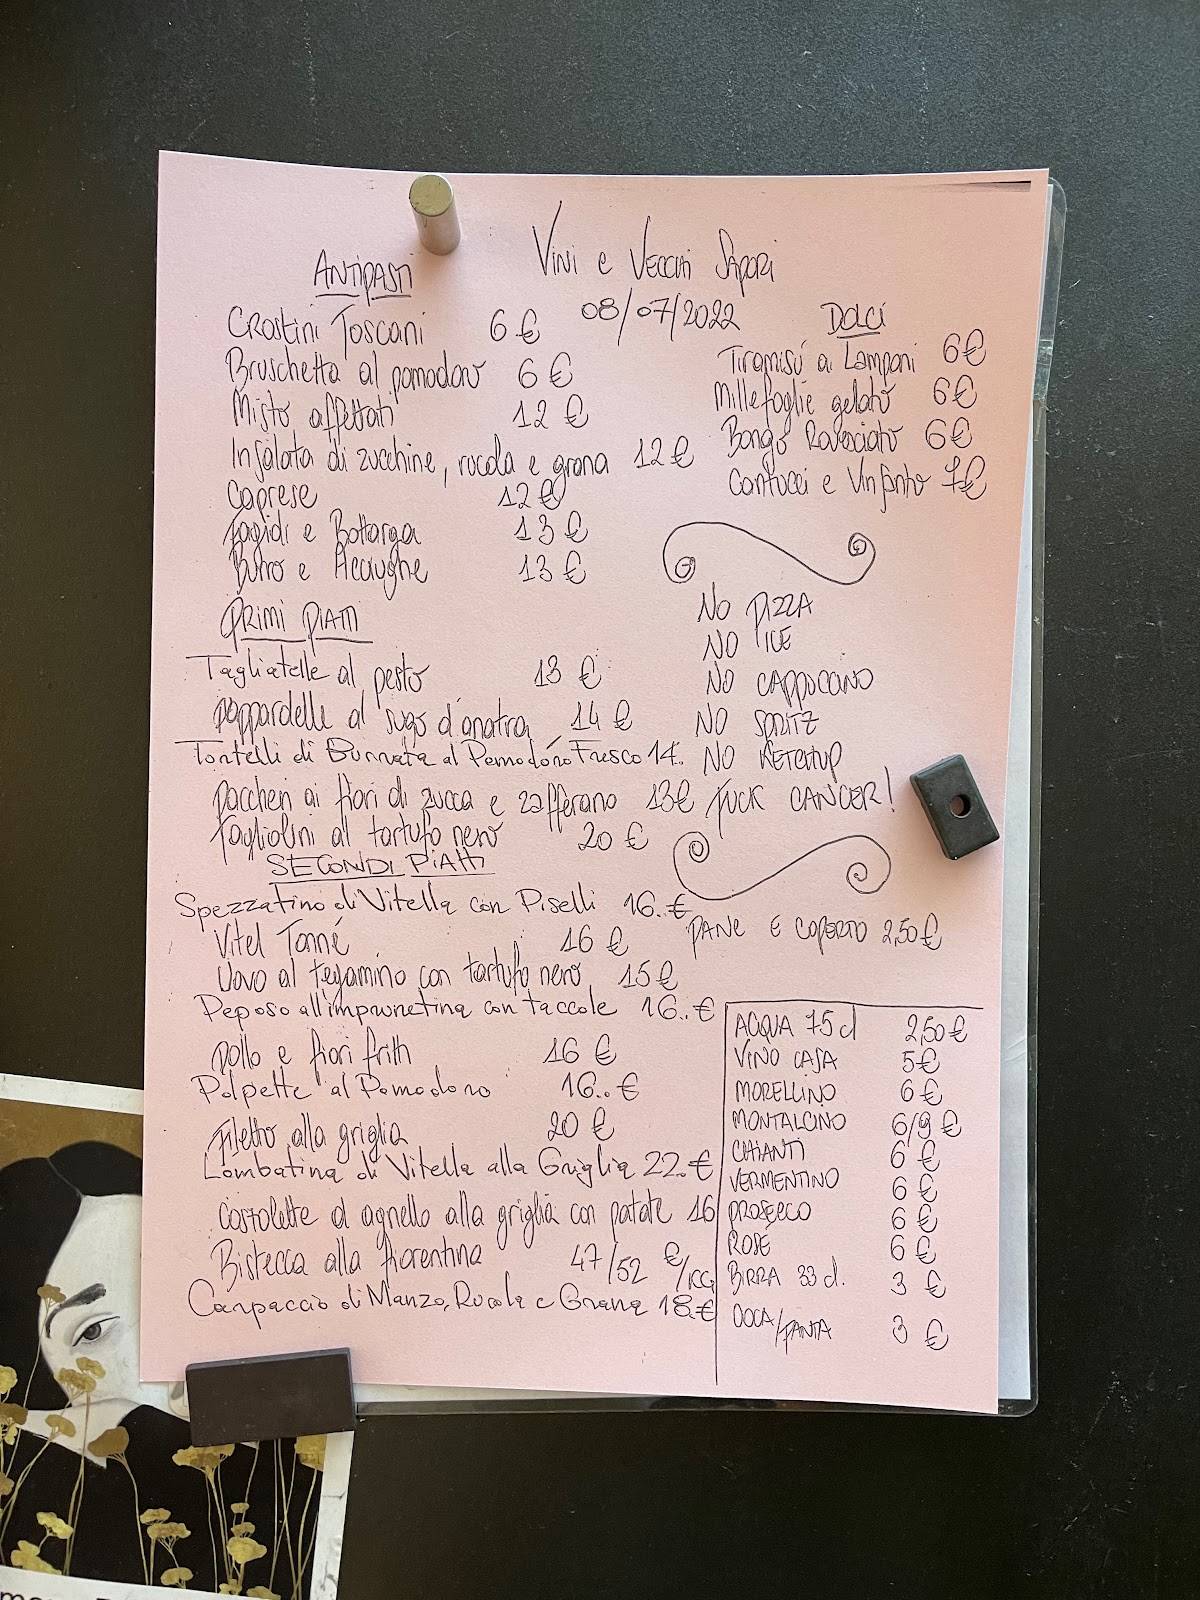 Vini e Vecchi Sapori
08/07/2022
ANTIPASTI
Crostini Toscani 6 €
Bruschetta al pomodoro 6 €
Misto affettati 12 €
Insalata di zucchine, rucola e grana 12 €
Caprese 12 €
Fagioli e Bottarga 13 €
Burro e Acciughe 13 €
PRIMI PIATTI
Tagliatelle al pesto 13 €
pappardelle al sugo d'anatra 14 €
Tortelli di Burrata al Pomodoro Fresco 14..
paccheri ai fiori di zucca e zafferano 13 €
tagliolini al tartufo nero 20 €
SECONDI PIATTI
Spezzatino di Vitella con Piselli 16..€
Vitel Tonné 16 €
Uovo al tegamino con tartufo nero 15 €
Peposo all'imprunetina con taccole 16..€
pollo e fiori fritti 16 €
Polpette al Pomodoro 16..€
Filetto alla griglia 20 €
Lombatina di Vitella alla Griglia 22.€
Costolette d'agnello alla griglia con patate 16
Bistecca alla fiorentina 47/52 €/KG
Carpaccio di Manzo, Rucola e Grana 18.€
DOLCI
Tiramisú ai Lamponi 6 €
Millefoglie gelato 6 €
Bongo Rovesciato 6 €
Cantucci e Vinsanto 7 €
NO PIZZA
NO ICE
NO CAPPUCCINO
NO SPRITZ
NO KETCHUP
FUCK CANCER!
PANE E COPERTO 2,50 €
ACQUA 75 cl 2,50 €
VINO CASA 5 €
MORELLINO 6 €
MONTALCINO 6/9 €
CHIANTI 6 €
VERMENTINO 6 €
PROSECCO 6 €
ROSE 6 €
BIRRA 33 cl. 3 €
COCA/FANTA 3 €